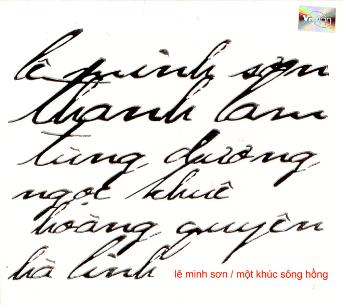 lê minh sơn
thanh lam
tùng dương
ngọc khuê
hoàng quyên
hà linh
lê minh sơn / một khúc sông hồng